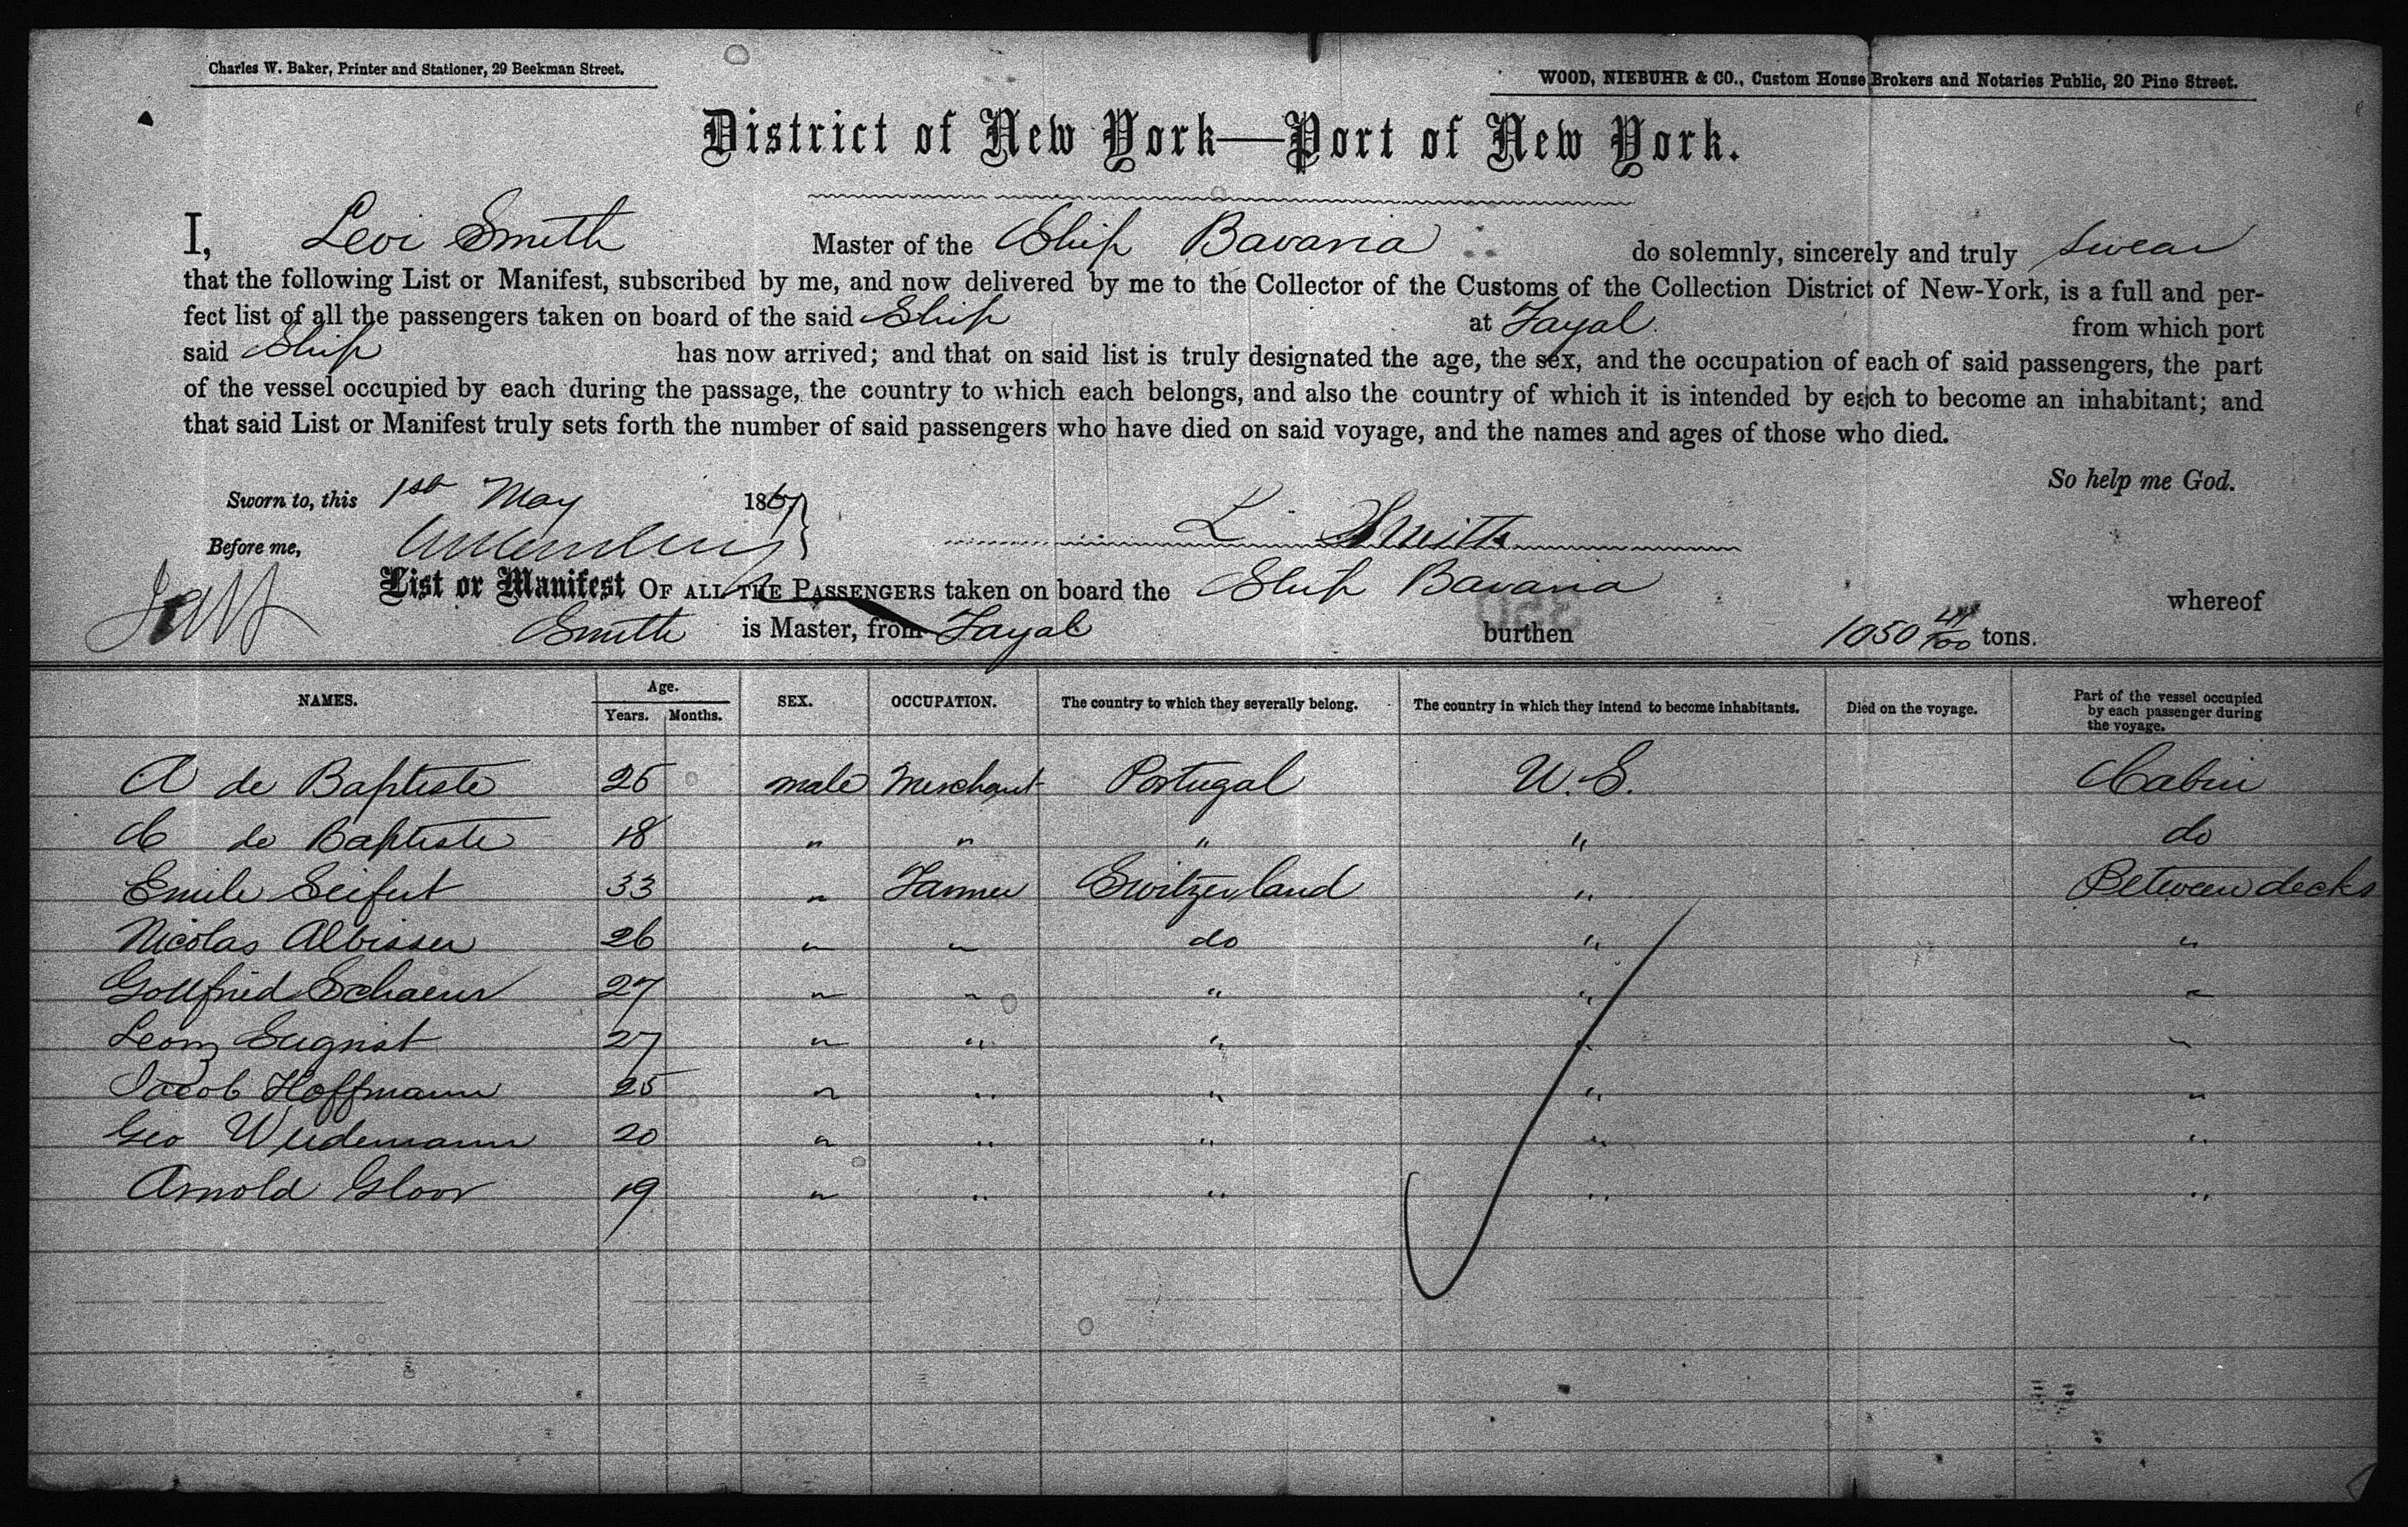 Charles W. Baker, Printer and Stationer, 29 Beekman Street.
WOOD, NIEBUHR & CO., Custom House Brokers and Notaries Public, 20 Pine Street.
District of New York—Port of New York.
I, Levi Smith Master of the Ship Bavaria do solemnly, sincerely and truly swear
that the following List or Manifest, subscribed by me, and now delivered by me to the Collector of the Customs of the Collection District of New-York, is a full and per-
fect list of all the passengers taken on board of the said Ship at Fayal from which port
said Ship has now arrived; and that on said list is truly designated the age, the sex, and the occupation of each of said passengers, the part
of the vessel occupied by each during the passage, the country to which each belongs, and also the country of which it is intended by each to become an inhabitant; and
that said List or Manifest truly sets forth the number of said passengers who have died on said voyage, and the names and ages of those who died.
So help me God.
Sworn to, this 1st May 1867
L Smith
Before me,
List or Manifest OF ALL THE PASSENGERS taken on board the Ship Bavaria whereof
Smith is Master, from Fayal burthen 1050 tons.
NAMES. Age. Years. Months. SEX. OCCUPATION. The country to which they severally belong. The country in which they intend to become inhabitants. Died on the voyage. Part of the vessel occupied by each passenger during the voyage.
A de Baptiste 25 male Merchant Portugal U.S. Cabin
C de Baptiste 18 " " " " do
Emile Seifert 33 " Farmer Switzerland " Between decks
Nicolas Albisser 26 " " do " "
Gottfried Schaerer 27 " " " " "
Leonz Eugrist 27 " " " " "
Jacob Hoffmann 25 " " " " "
Geo Weidemann 20 " " " " "
Arnold Gloor 19 " " " " "